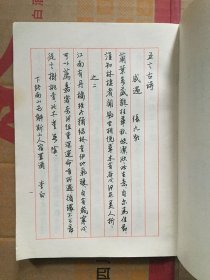 五言古詩
感遇 張九齡
蘭葉春葳蕤桂華秋皎潔欣欣此生意自爾為佳節
誰知林棲者聞風坐相悅草木有本心何求美人折
之二
江南有丹橘經冬猶綠林豈伊地氣暖自有歲寒心
可以薦嘉客奈何阻重深運命惟所遇循環不可尋
徒言樹桃李此木豈無陰
下終南山過斛斯山人宿置酒 李白